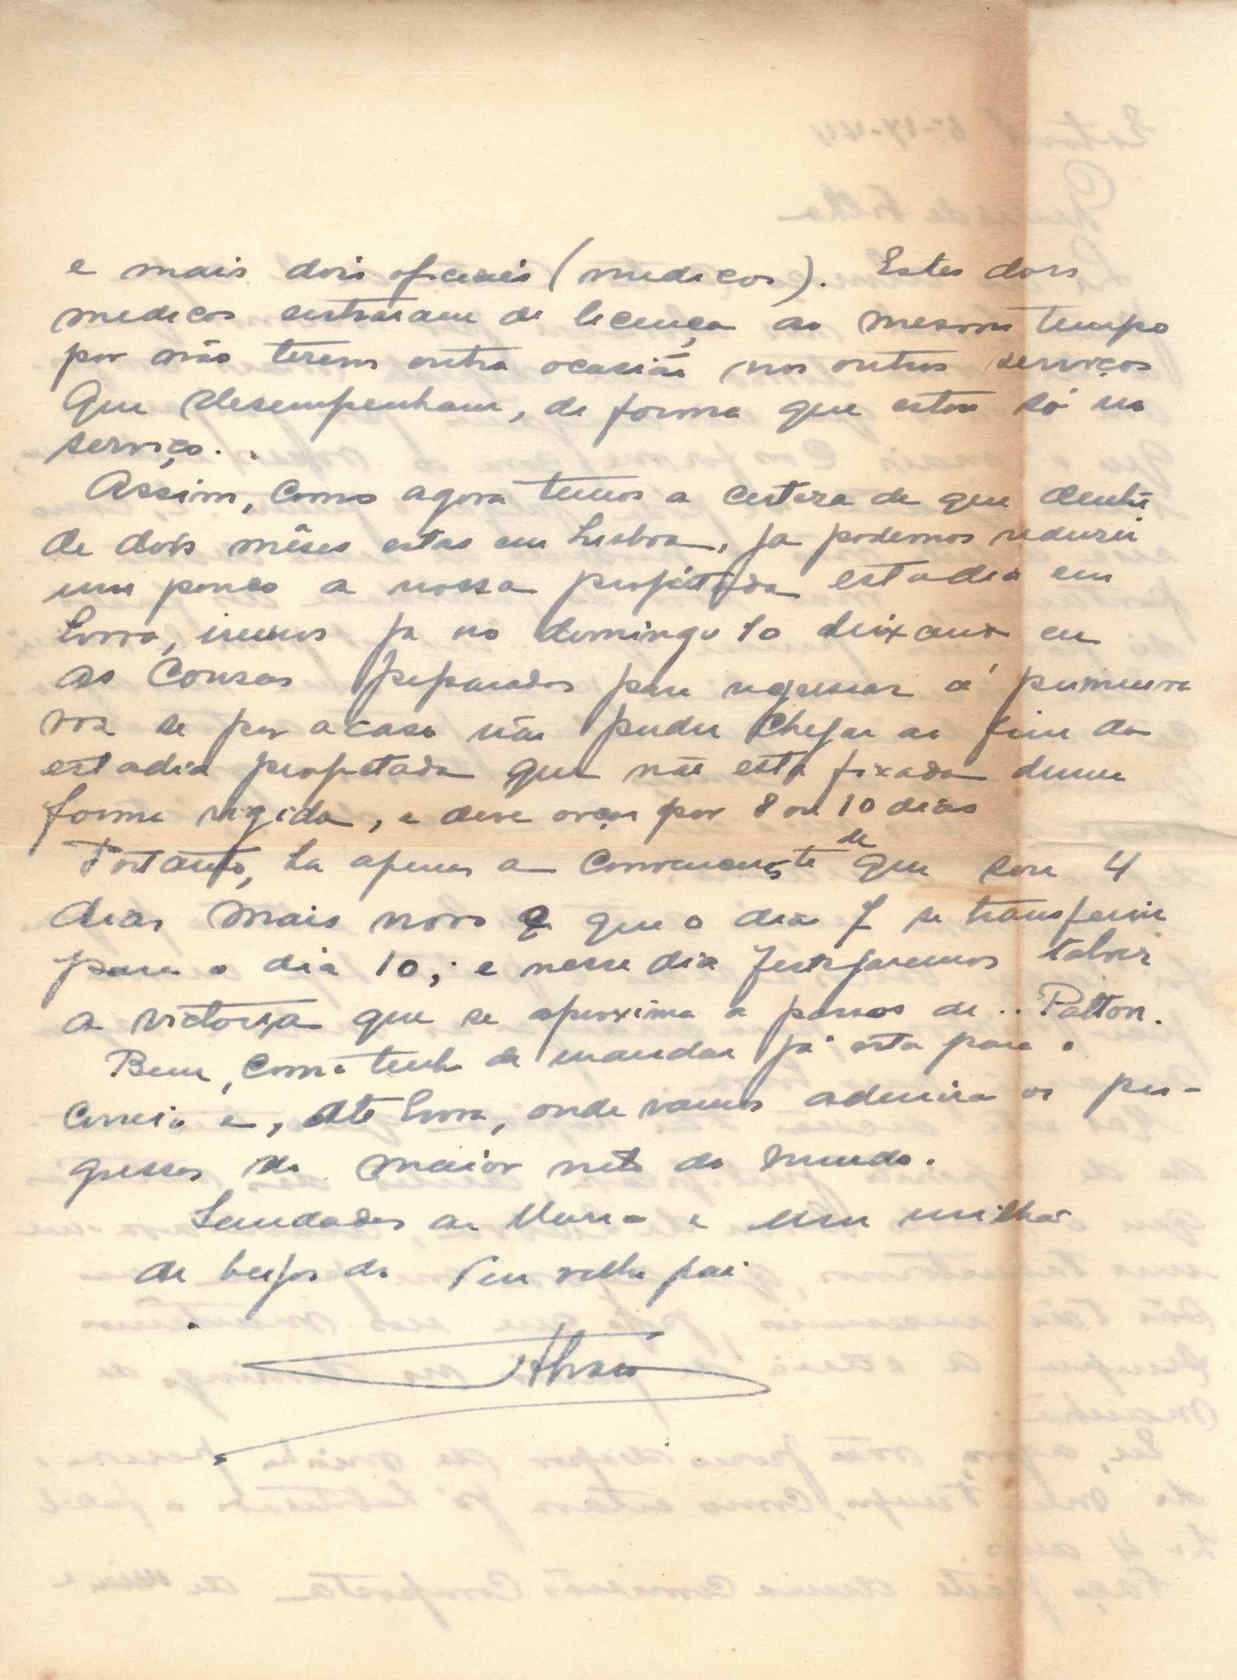 e mais dois oficiais (medicos). Estes dois
medicos entraram de licença ao mesmo tempo
por não terem outra ocasião nos outros serviços
que desempenham, de forma que estou só no
serviço.
Assim, como agora temos a certeza de que dentro
de dois mêses estas em Lisboa, ja podemos reduzir
um pouco a nossa projetada estadia em
iremos ja no domingo 10 deixando eu
as Cousas preparadas para regressar á primeira
voz se por acaso não puder chegar ao fim da
estadia projetada que não está fixada duma
forma rigida, e deve orçar por 8 ou 10 dias
Portanto, apenas a convencer-te de que sou 4
dias mais novo e que o dia 7 se transferiu
para o dia 10; e nesse dia festejaremos talvez
a victoria que se aproxima a passos de .. Patton.
Bem, como tenho de mandar já esta para o
correio e, até onde vamos admirar os pro-
gressos do maior neto do mundo.
Saudades ao e um milhar
de beijos do teu velho pai